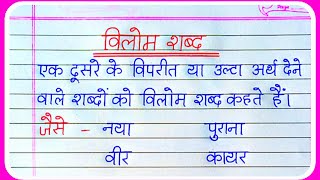 विलोम शब्द
एक दूसरे के विपरीत या उल्टा अर्थ देने
वाले शब्दों को विलोम शब्द कहते हैं।
जैसे - नया पुराना
वीर कायर